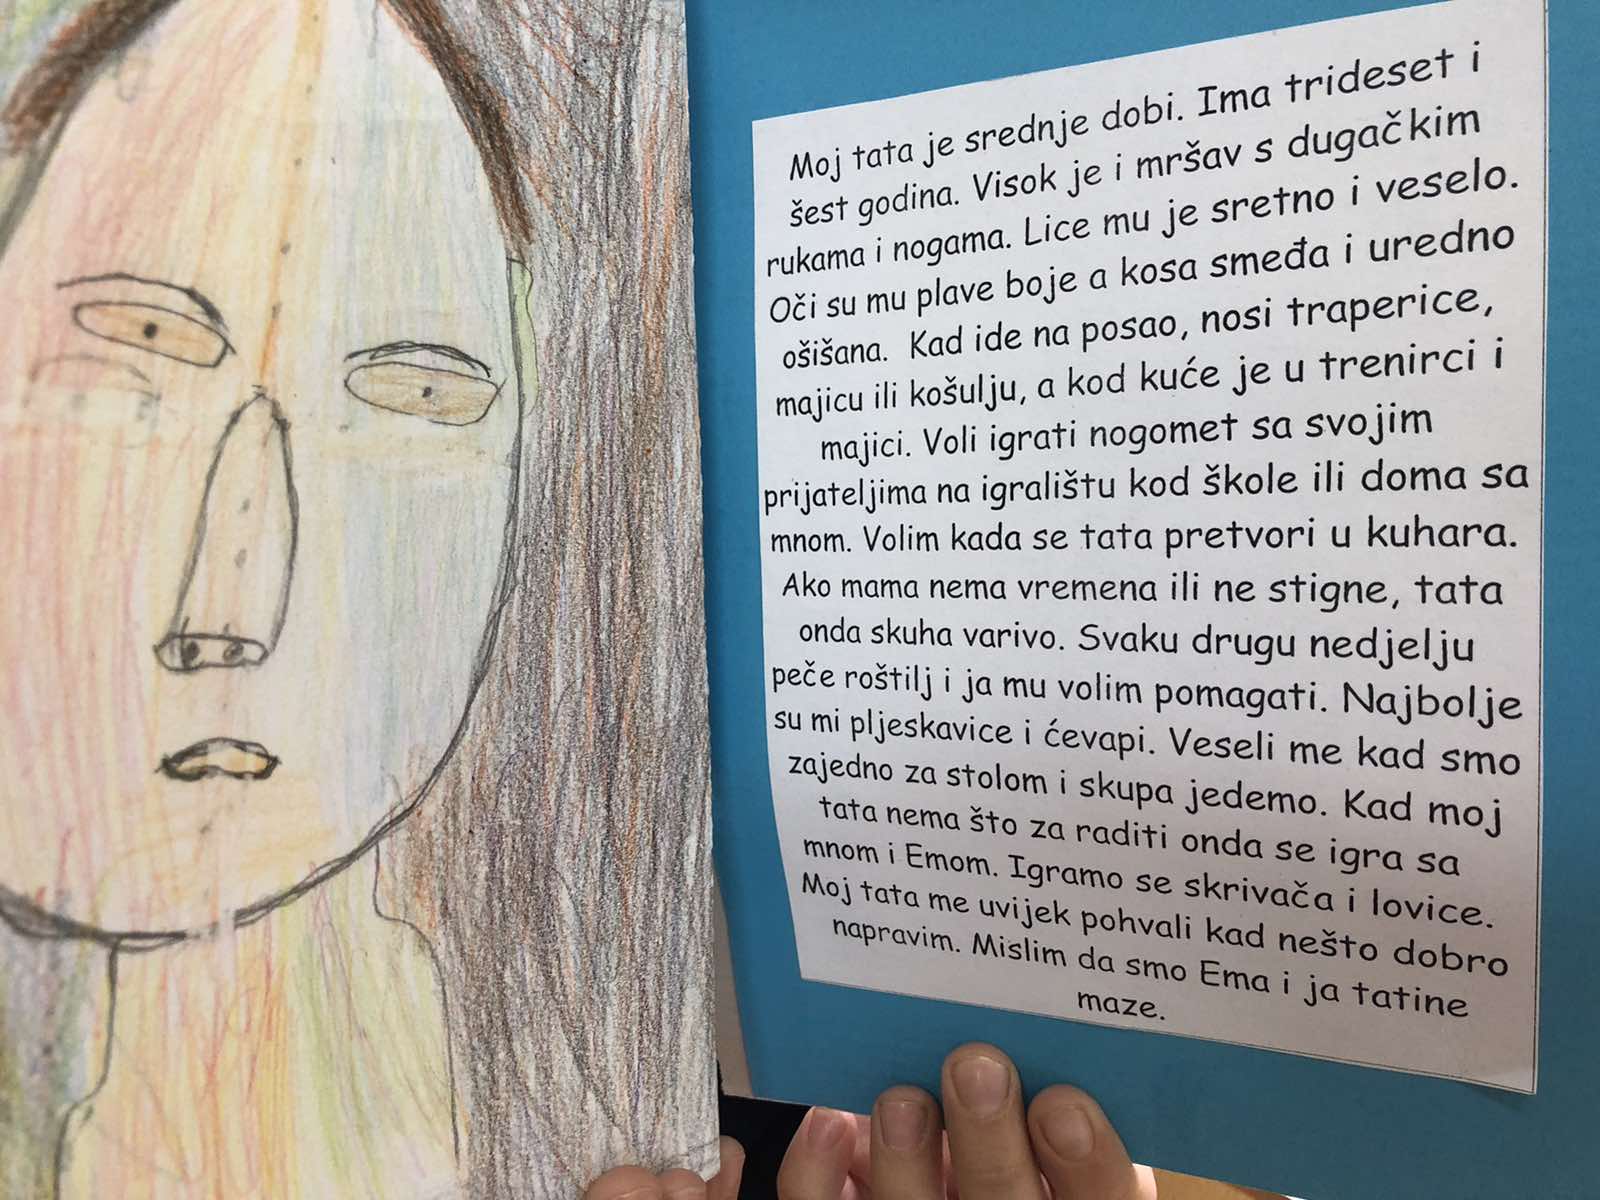 Moj tata je srednje dobi. Ima trideset i
šest godina. Visok je i mršav s dugačkim
rukama i nogama. Lice mu je sretno i veselo.
Oči su mu plave boje a kosa smeđa i uredno
ošišana. Kad ide na posao, nosi traperice,
majicu ili košulju, a kod kuće je u trenirci i
majici. Voli igrati nogomet sa svojim
prijateljima na igralištu kod škole ili doma sa
mnom. Volim kada se tata pretvori u kuhara.
Ako mama nema vremena ili ne stigne, tata
onda skuha varivo. Svaku drugu nedjelju
peče roštilj i ja mu volim pomagati. Najbolje
su mi pljeskavice i ćevapi. Veseli me kad smo
zajedno za stolom i skupa jedemo. Kad moj
tata nema što za raditi onda se igra sa
mnom i Emom. Igramo se skrivača i lovice.
Moj tata me uvijek pohvali kad nešto dobro
napravim. Mislim da smo Ema i ja tatine
maze.